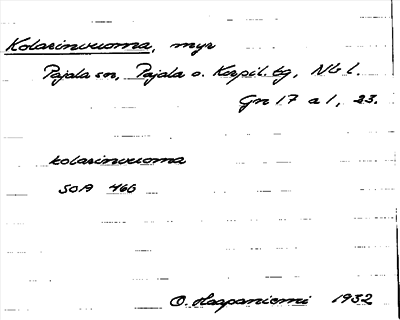 Kolarinvuoma, myr
Pajala sn, Pajala o. Korpil. tg, Nb l.
Gn 17 a 1, 23.
kolarinvuoma
SOA 466
O. Haapaniemi 1932